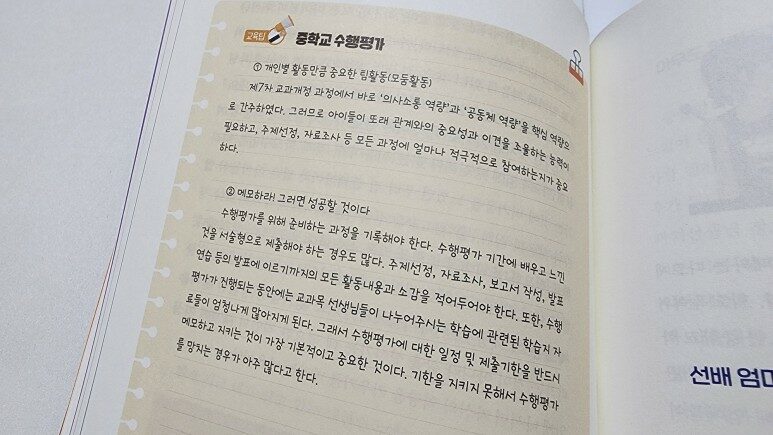 교육팁 중학교 수행평가
① 개인별 활동만큼 중요한 팀활동(모둠활동)
제7차 교과개정 과정에서 바로 '의사소통 역량'과 '공동체 역량'을 핵심 역량으
로 간주하였다. 그러므로 아이들이 또래 관계와의 중요성과 이견을 조율하는 능력이
필요하고, 주제선정, 자료조사 등 모든 과정에 얼마나 적극적으로 참여하는지가 중요
하다.
② 메모하라! 그러면 성공할 것이다
수행평가를 위해 준비하는 과정을 기록해야 한다. 수행평가 기간에 배우고 느낀
것을 서술형으로 제출해야 하는 경우도 많다. 주제선정, 자료조사, 보고서 작성, 발표
연습 등의 발표에 이르기까지의 모든 활동내용과 소감을 적어두어야 한다. 또한, 수행
평가가 진행되는 동안에는 교과목 선생님들이 나누어주시는 학습에 관련된 학습지 자
료들이 엄청나게 많아지게 된다. 그래서 수행평가에 대한 일정 및 제출기한을 반드시
메모하고 지키는 것이 가장 기본적이고 중요한 것이다. 기한을 지키지 못해서 수행평가
를 망치는 경우가 아주 많다고 한다.
선배 엄마